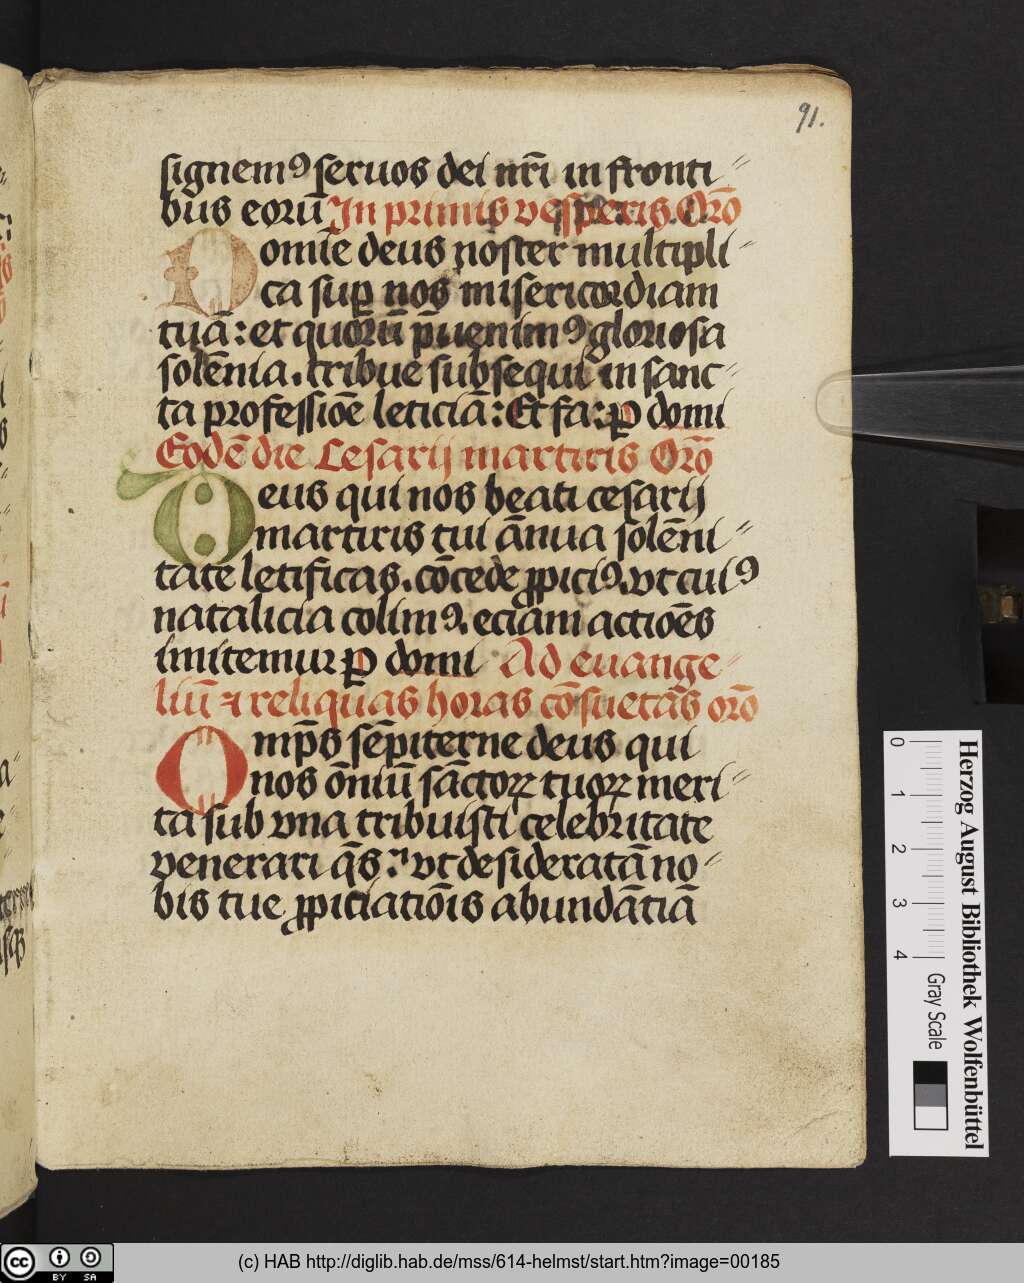 91.
signemꝰ seruos dei nr̄i in fronti⸗
bus eorū In primis vesperis. Orō
Domīe deus noster multipli⸗
ca sup̱ nos misericordiam
tuā: et quorū p̄uenimꝰ gloriosa
solēnia. tribue subsequi in sanc⸗
ta professiōe leticiā: Et fa: ꝑ domi
Eodē die Cesarij martiris Orō
Deus qui nos beati cesarij
martiris tui ānua solēni⸗
tate letificas. cōcede ꝓpiciꝰ. vt cuiꝰ
natalicia colimꝰ. eciam actiōes
imitemur ꝑ domi Ad euange⸗
liū ⁊ reliquas horas cōsuetas orō
Omp̄s sēpiterne deus qui
nos ōniū sāctoꝝ tuoꝝ meri⸗
ta sub vna tribuisti celebritate
venerari q̄s: vt desideratā no⸗
bis tue ꝓpitiatiōis abundātiā
Herzog August Bibliothek Wolfenbüttel
0 1 2 3 4 Gray Scale
cc BY SA
(c) HAB http://diglib.hab.de/mss/614-helmst/start.htm?image=00185